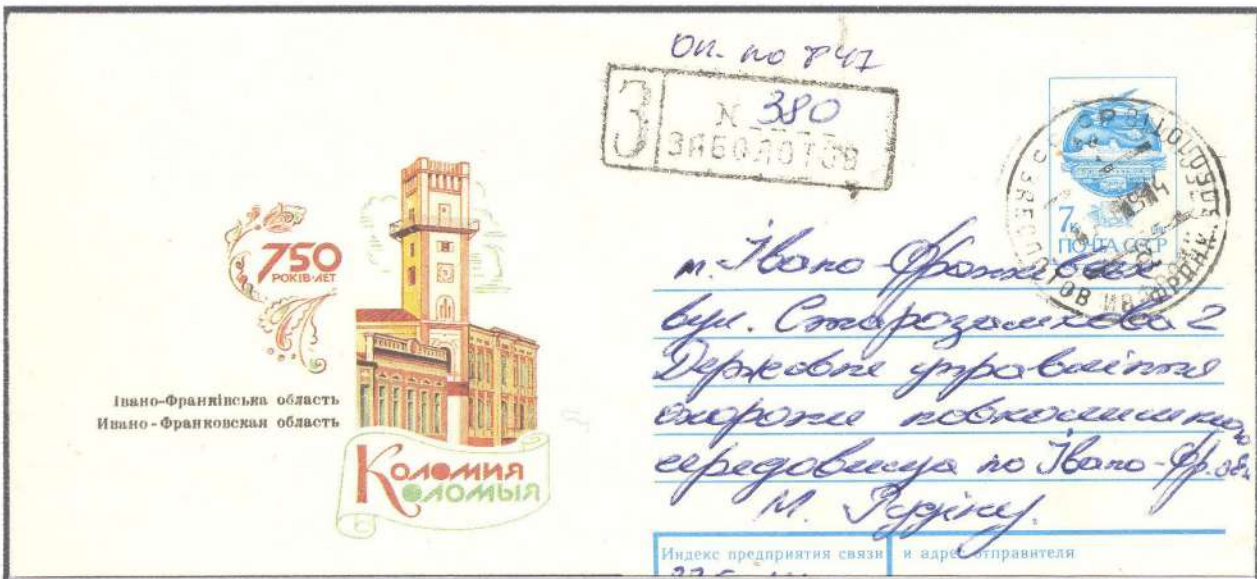 оп. по 847
З
N 380
ЗАБОЛОТОВ
7к
ПОЧТА СССР
750
РОКІВ·ЛЕТ
Івано-Франківська область
Ивано-Франковская область
Коломия
Коломыя
м. Івано-Франківськ
вул. Старозамкова 2
Державне управління
охорони навколишнього
середовища по Івано-Фр. обл
М.
Индекс предприятия связи и адрес отправителя